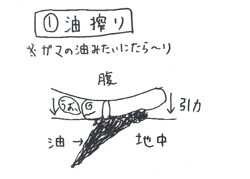 ① 油搾り
※ガマの油みたいにたら〜り
腹
引力
油→
地中